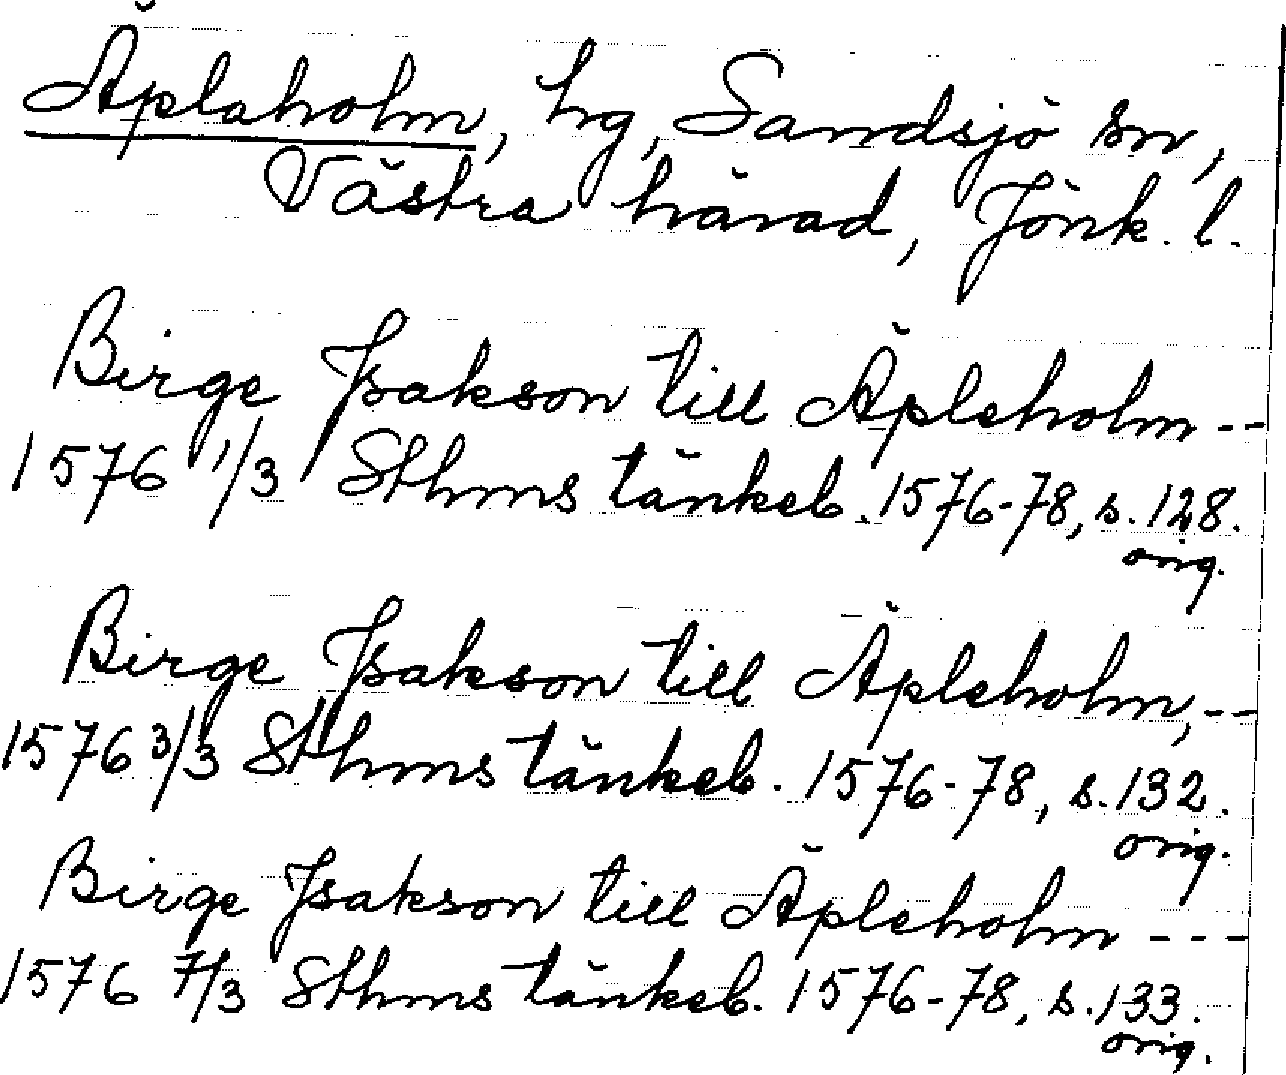 Äplaholm, hg, Sandsjö sn,
Västra härad, Jönk. l.
Birge Jsakson till Äpleholm --
1576 1/3 Sthms tänkeb. 1576-78, s. 128.
orig.
Birge Jsakson till Äpleholm, --
1576 3/3 Sthms tänkeb. 1576-78, s. 132.
orig.
Birge Jsakson till Äpleholm ---
1576 7/3 Sthms tänkeb. 1576-78, s. 133.
orig.